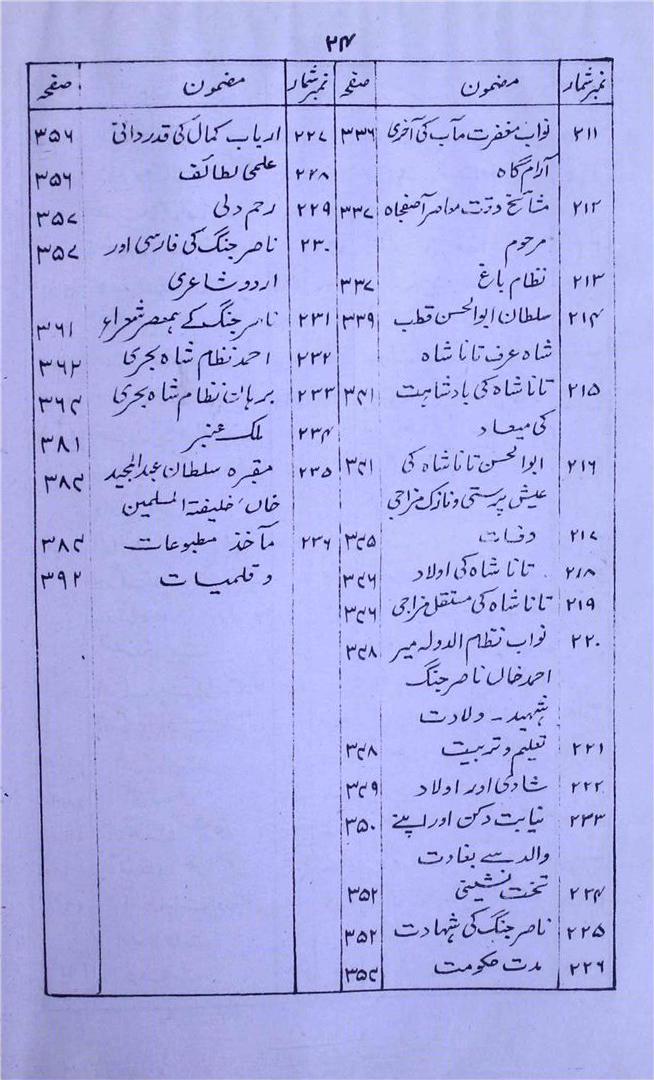 ۲۴
نمبر شمار مضمون صفحہ نمبر شمار مضمون صفحہ
۲۱۱ نواب مغفرت مآب کی آخری ۳۳۶
آرام گاہ
۲۱۲ مشائخ وقت معاصر آصفجاہ ۳۳۷
مرحوم
۲۱۳ نظام باغ ۳۳۷
۲۱۴ سلطان ابوالحسن قطب ۳۳۹
شاہ عرف تانا شاہ
۲۱۵ تانا شاہ کی بادشاہت ۳۴۱
کی میعاد
۲۱۶ ابوالحسن تانا شاہ کی ۳۴۱
عیش پرستی و نازک مزاجی
۲۱۷ وفات ۳۴۵
۲۱۸ تانا شاہ کی اولاد ۳۴۶
۲۱۹ تانا شاہ کی مستقل مزاجی ۳۴۶
۲۲۰ نواب نظام الدولہ میر ۳۴۸
احمد خاں ناصر جنگ
شہید ۔ ولادت
۲۲۱ تعلیم و تربیت ۳۴۸
۲۲۲ شادی اور اولاد ۳۴۹
۲۳۳ نیابت دکن اور اپنے ۳۵۰
والد سے بغاوت
۲۲۴ تخت نشینی ۳۵۲
۲۲۵ ناصر جنگ کی شہادت ۳۵۲
۲۲۶ مدت حکومت ۳۵۴
۲۲۷ ارباب کمال کی قدردانی ۳۵۶
۲۲۸ علمی لطائف ۳۵۶
۲۲۹ رحم دلی ۳۵۷
۲۳۰ ناصر جنگ کی فارسی اور ۳۵۷
اردو شاعری
۲۳۱ ناصر جنگ کے ہمعصر شعراء ۳۶۱
۲۳۲ احمد نظام شاہ بحری ۳۶۲
۲۳۳ برہان نظام شاہ بحری ۳۶۴
۲۳۴ ملک عنبر ۳۸۱
۲۳۵ مقبرہ سلطان عبدالمجید ۳۸۴
خاں، خلیفۃ المسلمین
۲۳۶ مآخذ مطبوعات ۳۸۴
و قلمیات ۳۹۲